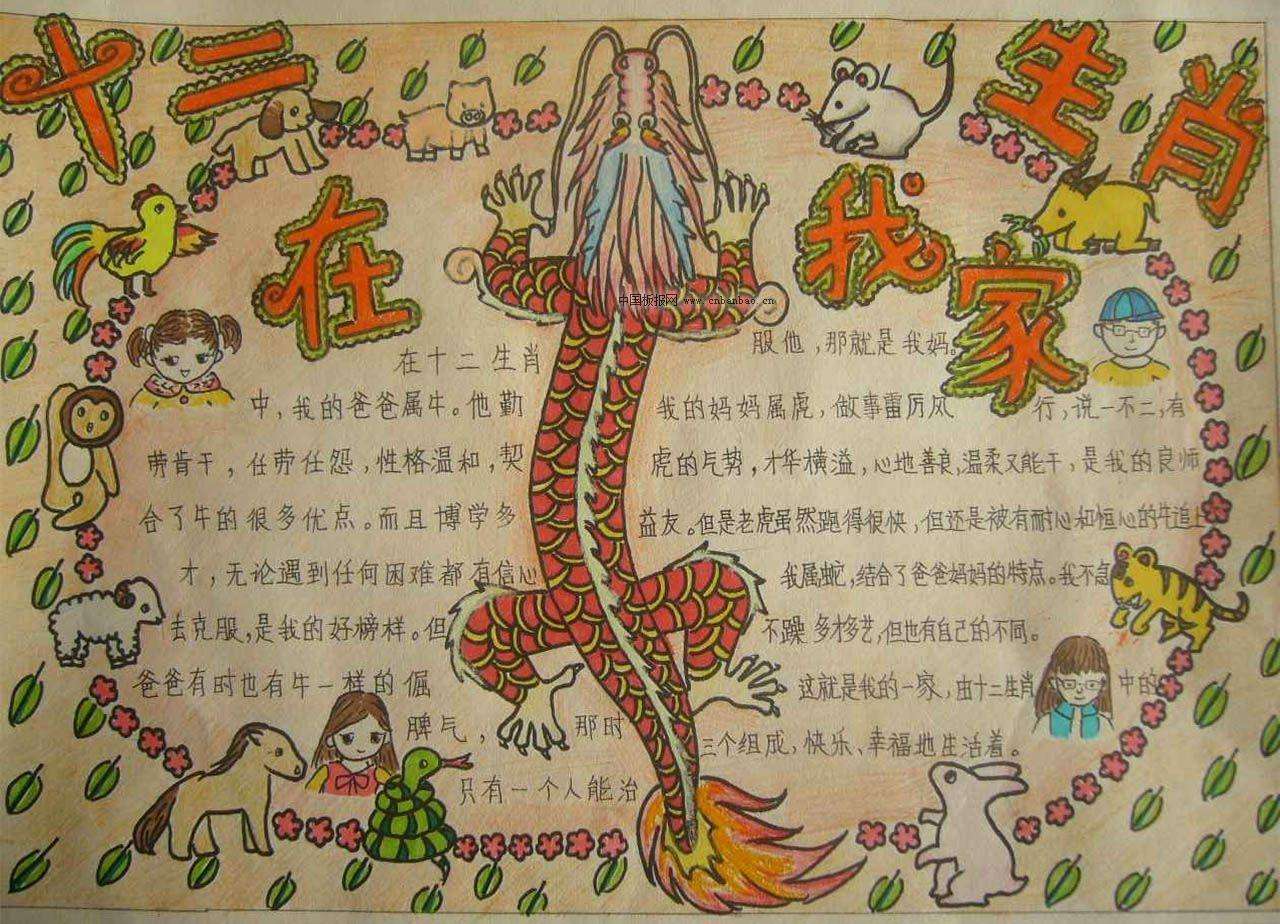 十二生肖
在我家
中国板报网 www.cnbanbao.cn
在十二生肖
中，我的爸爸属牛。他勤
劳肯干，任劳任怨，性格温和，契
合了牛的很多优点。而且博学多
才，无论遇到任何困难都有信心
去克服，是我的好榜样。但
爸爸有时也有牛一样的倔
脾气，那时
只有一个人能治
服他，那就是我妈。
我的妈妈属虎，做事雷厉风行，说一不二，有
虎的气势，才华横溢，心地善良，温柔又能干，是我的良师
益友。但是老虎虽然跑得很快，但还是被有耐心和恒心的牛追上
我属蛇，结合了爸爸妈妈的特点。我不急
不躁，多才多艺，但也有自己的不同。
这就是我的一家，由十二生肖中的
三个组成，快乐、幸福地生活着。